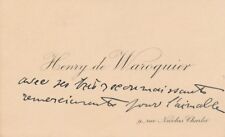 Henry de Waroquier
avec ses très reconnaissants
remerciements pour l'aimable
9, rue Nicolas Charlet